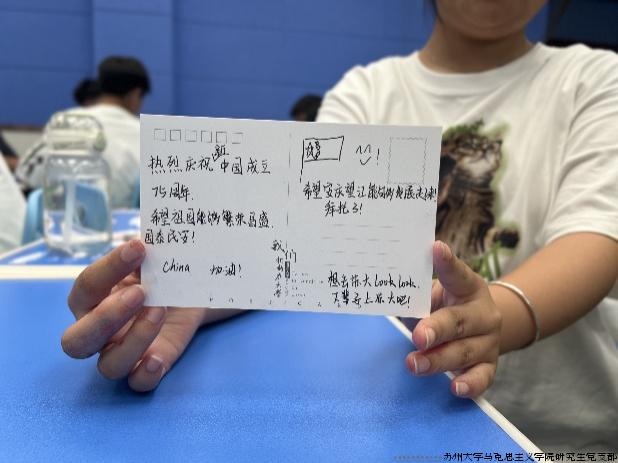 热烈庆祝新中国成立
75周年.
希望祖国能够繁荣昌盛
国泰民安!
China 加油!
希望安庆望江能够的发展起来!
拜托了!
我们
想去苏大Look Look.
下辈子上苏大吧!
苏州大学马克思主义学院研究生党支部